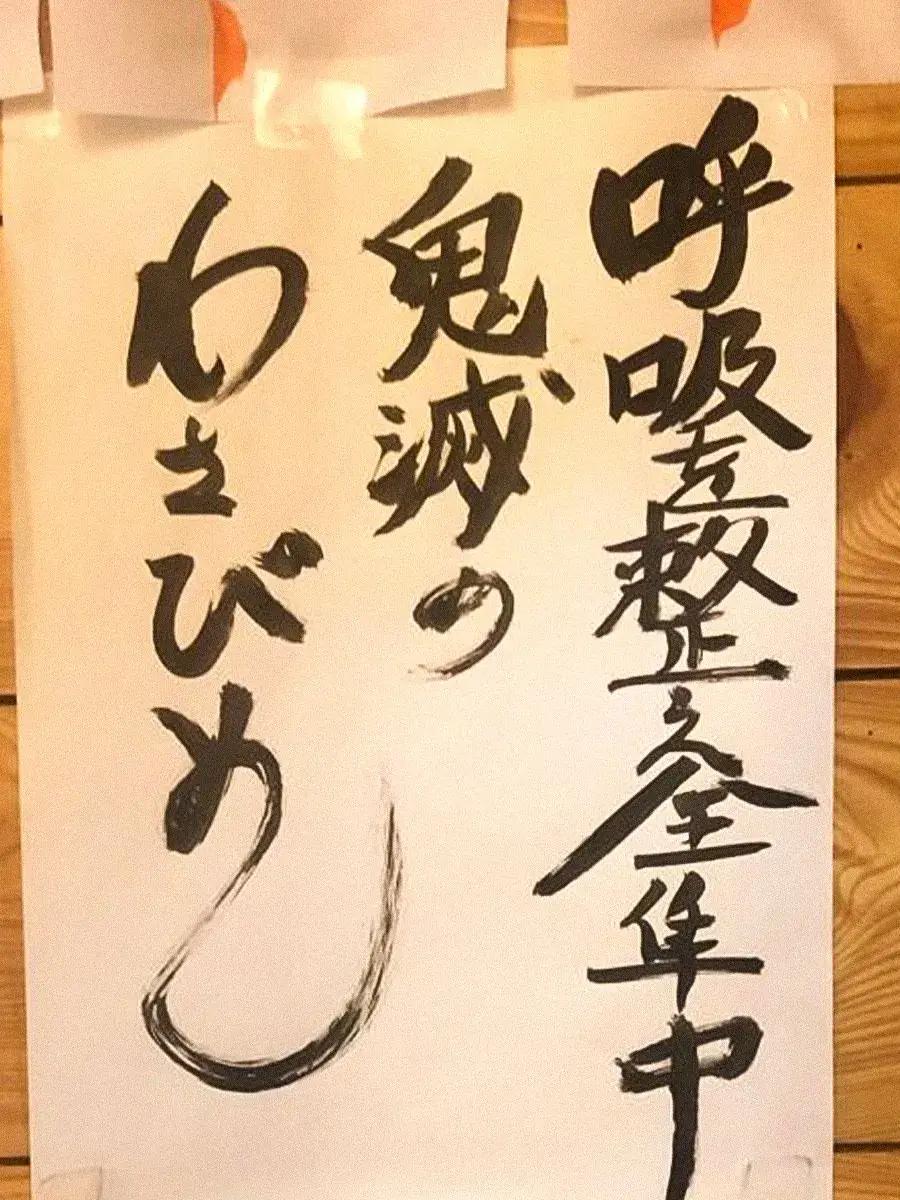 呼吸を整え全集中
鬼滅の
わさびめし